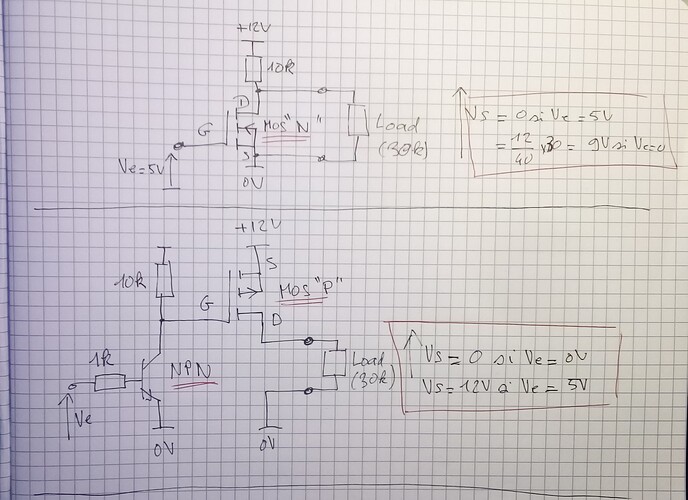 +12V
10k
D
G
MOS "N"
Load
(30k)
S
Ve=5V
0V
Vs = 0 si Ve = 5V
= 12/40 x 30 = 9V si Ve=0
+12V
S
10k
MOS "P"
G
D
1k
NPN
Load
(30k)
Ve
0V
0V
Vs = 0 si Ve = 0V
Vs = 12V si Ve = 5V